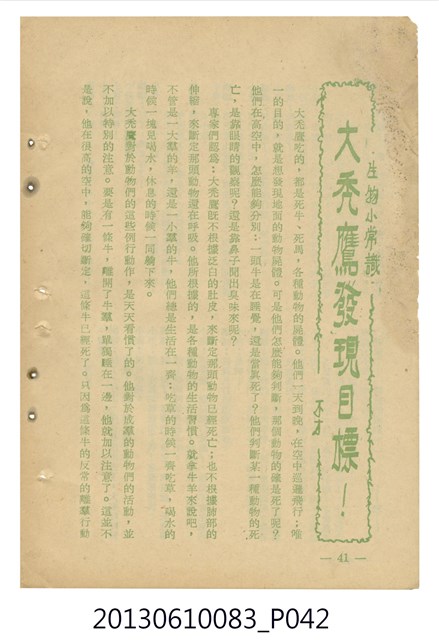 生物小常識
大禿鷹發現目標！
不才
大禿鷹吃的，都是死牛、死馬，各種動物的屍體。他們一天到晚，在空中迴邏飛行；唯
一的目的，就是想發現地面的動物屍體。可是他們怎麼能夠判斷，那個動物的確是死了呢？
他們在高空中，怎麼能夠分別：一頭牛是在睡覺，還是當真死了？他們判斷某一種動物的死
亡，是靠眼睛的觀察呢？還是靠鼻子聞出臭味來呢？
專家們認爲：大禿鷹既不根據泛白的肚皮，來斷定那頭動物已經死亡；也不根據肺部的
伸縮，來斷定那頭動物還在呼吸。他所根據的，是各種動物的生活習慣。就拿牛羊來說吧，
不管是一大羣的羊，還是一小羣的牛，他們總是生活在一齊：吃草的時候一齊吃草，喝水的
時候一塊兒喝水，休息的時候一同躺下來。
大禿鷹對於動物們的這些例行動作，是天天看慣了的。他對於成羣的動物們的活動，並
不加以特別的注意。要是有一條牛，離開了牛羣，單獨睡在一邊，他就加以注意了。這並不
是說，他在很高的空中，能夠確切斷定，這條牛已經死了。只因爲這條牛的反常的離羣行動
— 41 —
20130610083_P042